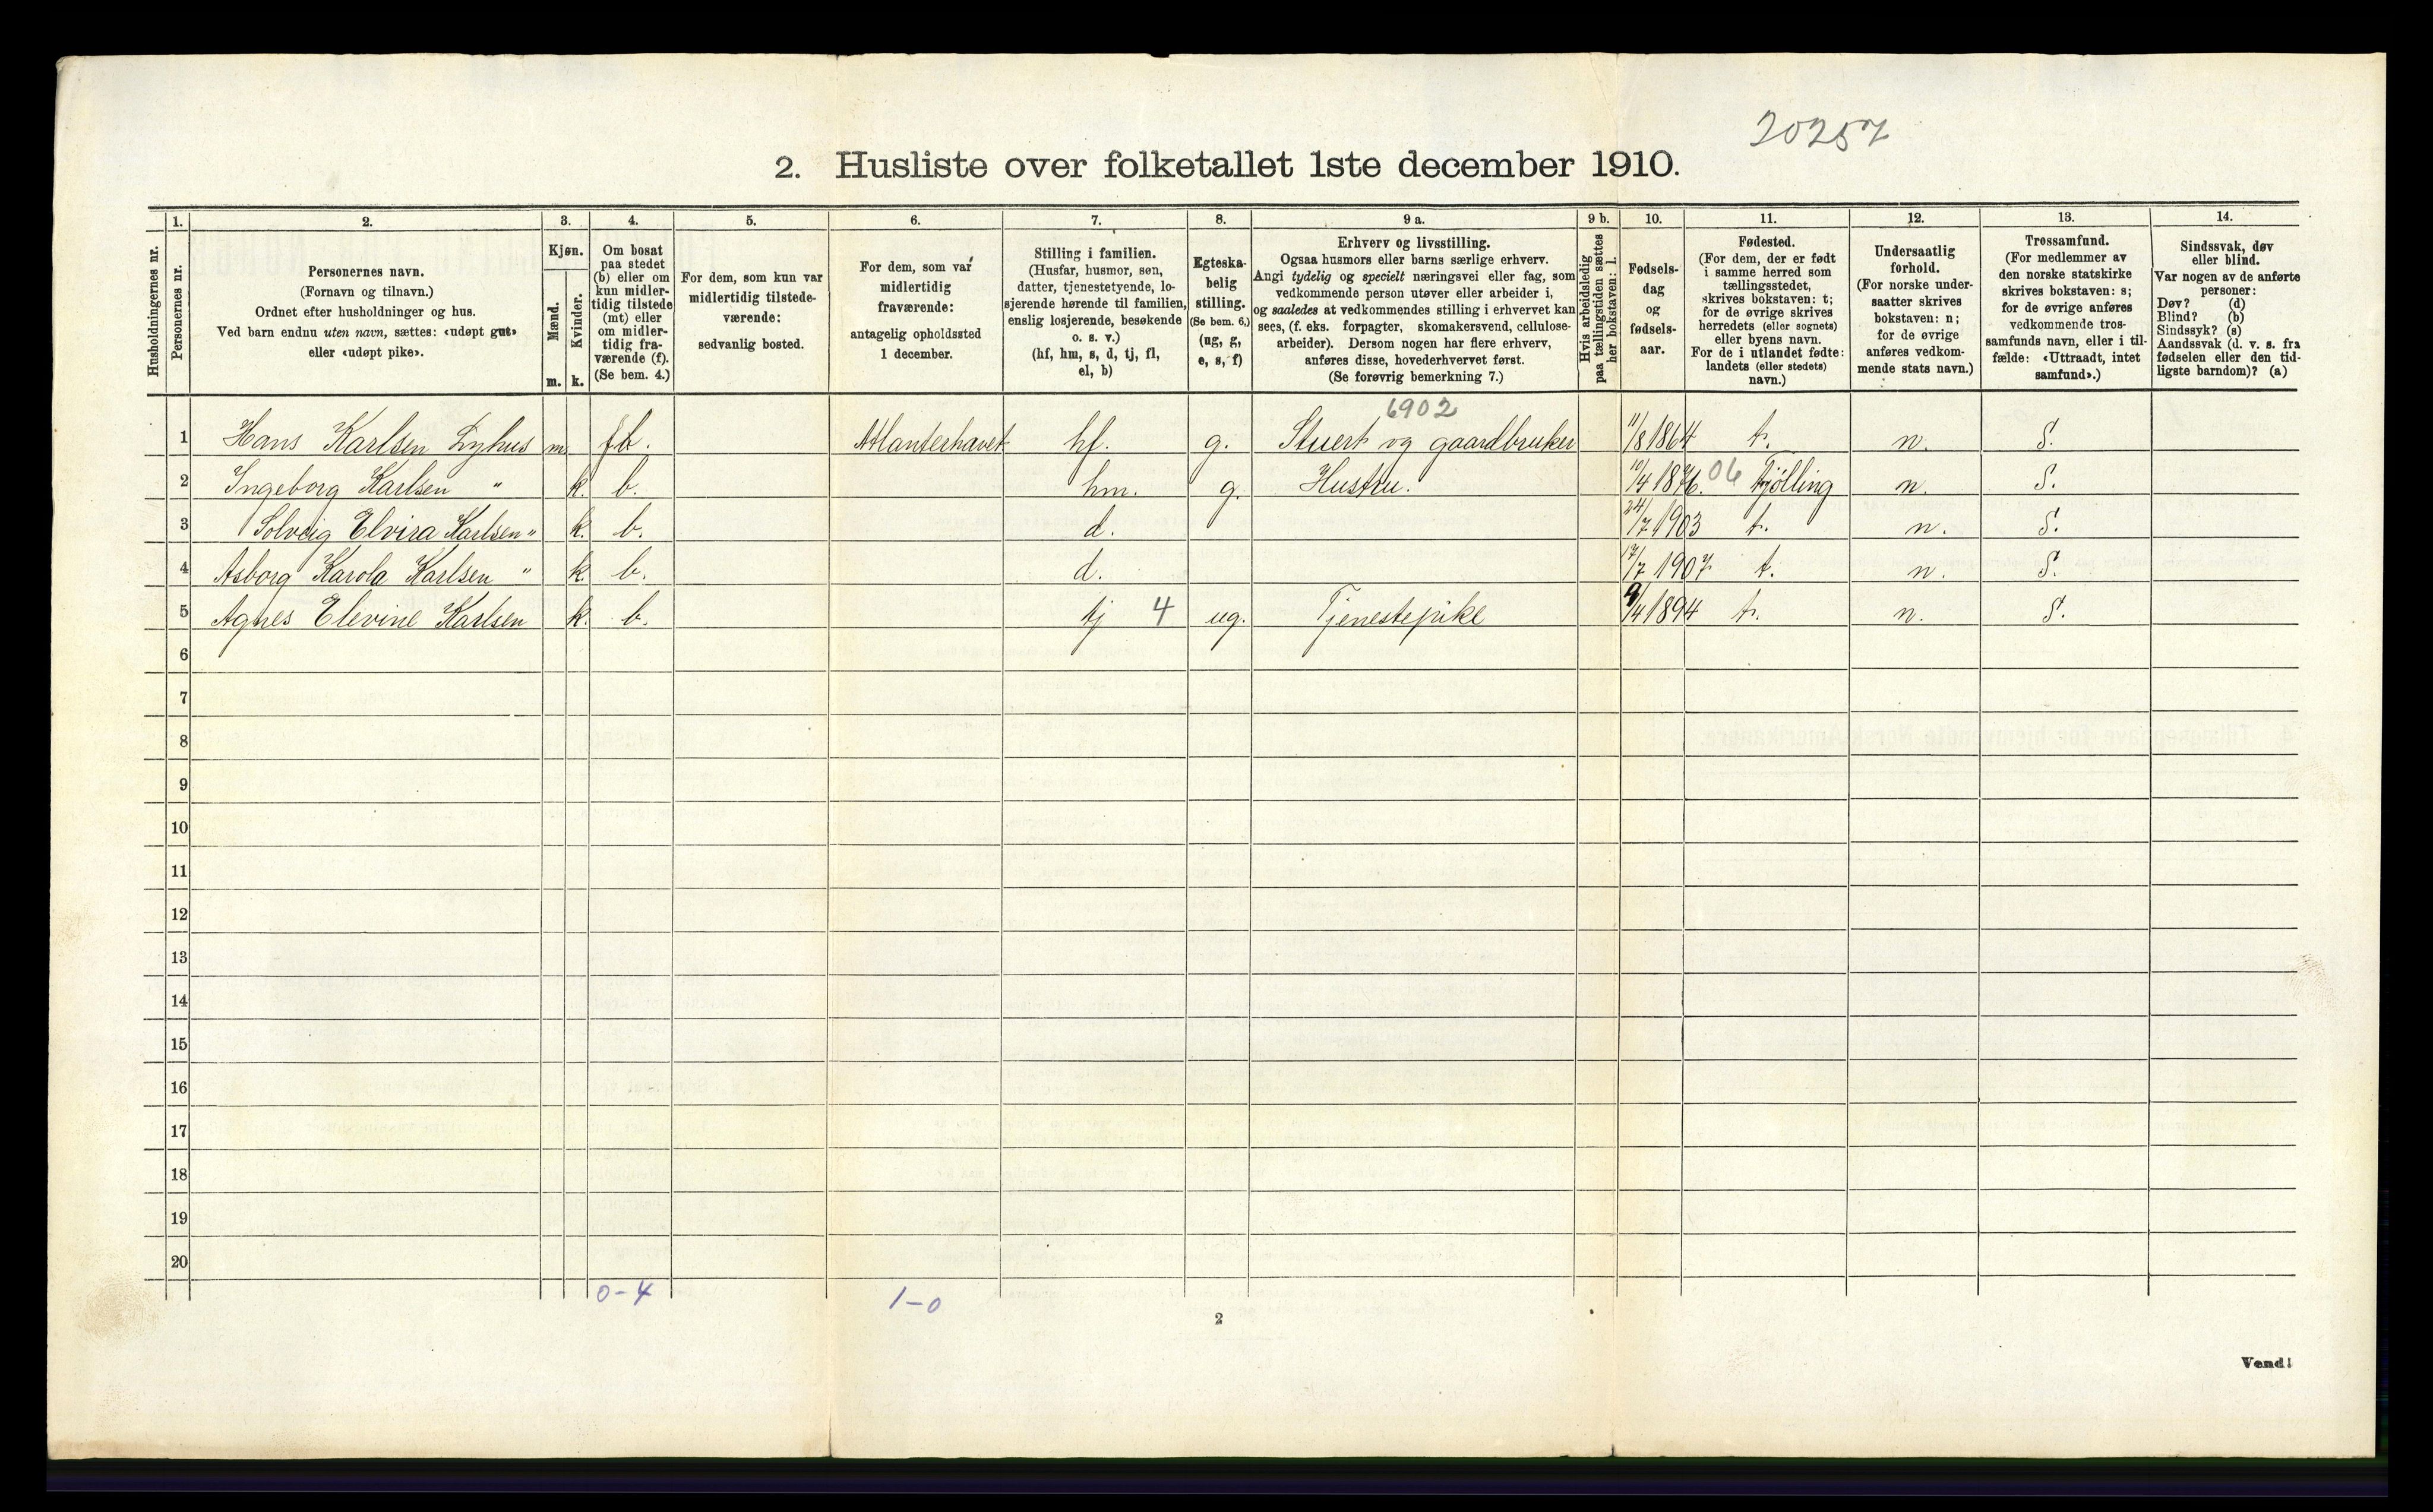 20257
2. Husliste over folketallet 1ste december 1910.
Husholdningernes nr.
1.
Personernes nr.
2.
Personernes navn.
(Fornavn og tilnavn.)
Ordnet efter husholdninger og hus.
Ved barn endnu uten navn, sættes: «udøpt gut»
eller «udøpt pike».
3.
Kjøn.
Mænd.
m.
Kvinder.
k.
4.
Om bosat
paa stedet
(b) eller om
kun midler-
tidig tilstede
(mt) eller
om midler-
tidig fra-
værende (f).
(Se bem. 4.)
5.
For dem, som kun var
midlertidig tilstede-
værende:
sedvanlig bosted.
6.
For dem, som var
midlertidig
fraværende:
antagelig opholdssted
1 december.
7.
Stilling i familien.
(Husfar, husmor, søn,
datter, tjenestetyende, lo-
sjerende hørende til familien,
enslig losjerende, besøkende
o. s. v.)
(hf, hm, s, d, tj, fl,
el, b)
8.
Egteska-
belig
stilling.
(Se bem. 6.)
(ug, g,
e, s, f)
9 a.
Erhverv og livsstilling.
Ogsaa husmors eller barns særlige erhverv.
Angi tydelig og specielt næringsvei eller fag, som
vedkommende person utøver eller arbeider i,
og saaledes at vedkommendes stilling i erhvervet kan
sees, (f. eks. forpagter, skomakersvend, cellulose-
arbeider). Dersom nogen har flere erhverv,
anføres disse, hovederhvervet først.
(Se forøvrig bemerkning 7.)
9 b.
Hvis arbeidsledig
paa tællingstiden sættes
her bokstaven: l.
10.
Fødsels-
dag
og
fødsels-
aar.
11.
Fødested.
(For dem, der er født
i samme herred som
tællingsstedet,
skrives bokstaven: t;
for de øvrige skrives
herredets (eller sognets)
eller byens navn.
For de i utlandet fødte:
landets (eller stedets)
navn.)
12.
Undersaatlig
forhold.
(For norske under-
saatter skrives
bokstaven: n;
for de øvrige
anføres vedkom-
mende stats navn.)
13.
Trossamfund.
(For medlemmer av
den norske statskirke
skrives bokstaven: s;
for de øvrige anføres
vedkommende tros-
samfunds navn, eller i til-
fælde: «Uttraadt, intet
samfund».)
14.
Sindssvak, døv
eller blind.
Var nogen av de anførte
personer:
Døv? (d)
Blind? (b)
Sindssyk? (s)
Aandssvak (d. v. s. fra
fødselen eller den tid-
ligste barndom)? (a)
6902
1 Hans Karlsen Lyhus m. f b. Atlanterhavet hf. g. Stuert og gaardbruker 11/8 1864 t. n. S.
2 Ingeborg Karlsen " k. b. hm. g. Hustru. 10/4 1876. 06 Tjølling n. S.
3 Solveig Elvira Karlsen " k. b. d. 24/7 1903 t. n. S.
4 Asborg Karola Karlsen " k. b. d. 17/7 1907 t. n. S.
5 Agnes Elevine Karlsen k. b. tj 4 ug. Tjenestepike 9/4 1894 t. n. S.
6
7
8
9
10
11
12
13
14
15
16
17
18
19
20
0-4 1-0
2
Vend!